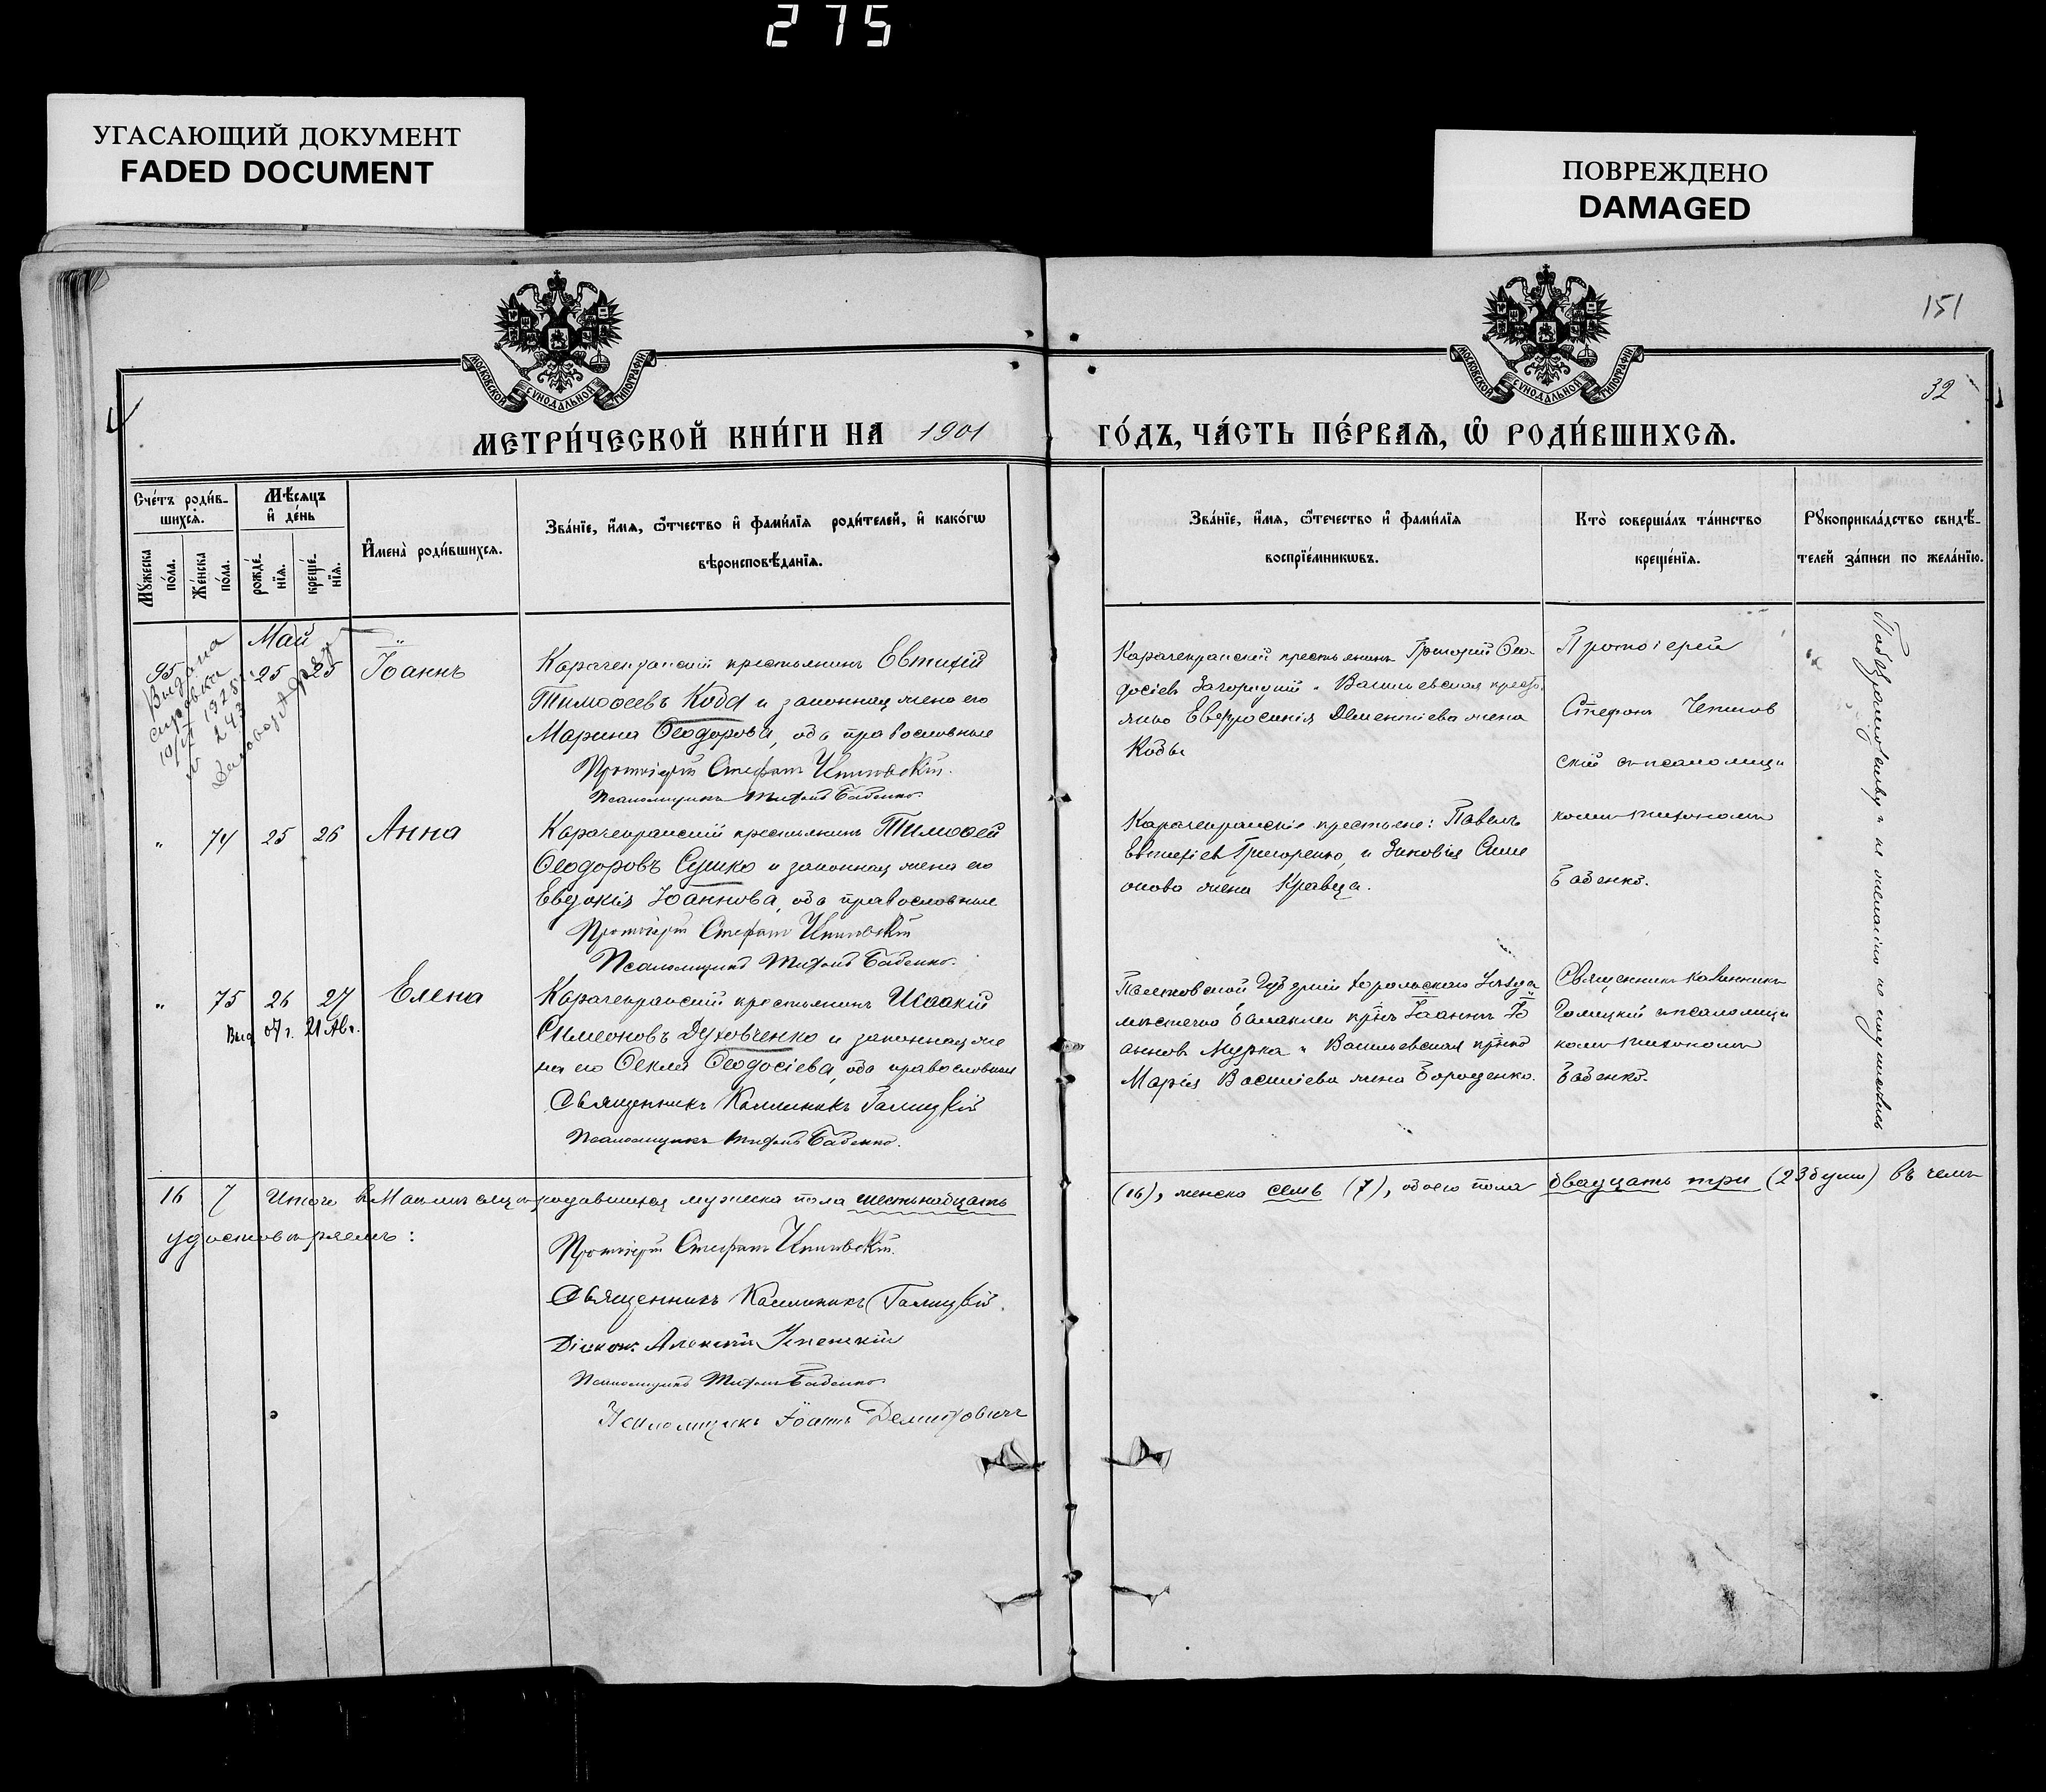 275
УГАСАЮЩИЙ ДОКУМЕНТ
FADED DOCUMENT
ПОВРЕЖДЕНО
DAMAGED
151
32
МОСКОВСКОЙ СѴНОДАЛЬНОЙ ТИПОГРАФІИ
МОСКОВСКОЙ СѴНОДАЛЬНОЙ ТИПОГРАФІИ
МЕТРИ́ЧЕСКОЙ КНИ́ГИ НА 1901
ГО́ДЪ, ЧА́СТЬ ПЕ́РВАѦ, Ѡ҆ РОДИ́ВШИХСѦ.
Сче́тъ роди́в-
шихсѧ.
Мꙋ́жеска по́ла.
Же́нска по́ла.
Мѣ́сѧцъ
и҆ де́нь
рожде́-
нїѧ.
креще́-
нїѧ.
И҆мена̀ роди́вшихсѧ.
Зва́нїе, и҆́мѧ, ѻ҆́тчество и҆ фами́лїѧ роди́телей, и҆ како́гѡ
вѣроисповѣ́данїѧ.
Зва́нїе, и҆́мѧ, ѻ҆́течество и҆ фами́лїѧ
воспрїе́мникѡвъ.
Кто̀ соверша́лъ та́инство
креще́нїѧ.
Рꙋкоприкла́дство свидѣ́-
телей за́писи по жела́нїю.
Май
95 25 25 Іоаннъ
Выдана
справка
Карачекранскій крестьянинъ Евтихій
Тимоѳеевъ Кода и законная жена его
Марина Ѳеодорова, оба православные
Протоіерей Стефанъ
Псаломщикъ Тихонъ Бабенко.
Карачекранскій крестьянинъ Григорій Ѳео-
досіевъ Загородній и Васильевская кресть
янка Евфросинія Дементіева жена
Коды
Протоіерей
Стефанъ
скій съ псаломщи
комъ Тихономъ
Бабенко.
" 74 25 26 Анна
Карачекранскій крестьянинъ Тимоѳей
Ѳеодоровъ Сушко и законная жена его
Евдокія Іоаннова, оба православные
Протоіерей Стефанъ
Псаломщикъ Тихонъ Бабенко.
Карачекранскіе крестьяне: Павелъ
Евтихіевъ Григоренко, и Зиновія Симе
онова жена Кравца.
" 75 26 27 Елена
Выд 07 г. 21 Авг.
Карачекранскій крестьянинъ Исаакій
Симеоновъ Духовченко и законная же
на его Ѳекла Ѳеодосіева, оба православные
Священникъ Каллиникъ Галицкій
Псаломщикъ Тихонъ Бабенко.
Полтавской Губерніи Хорольскаго Уѣзда
мѣстечка Бакаклеи кр-нъ Іоаннъ Іо
анновъ Мурка и Васильевская кр-нка
Марія Василіева жена Бороденко.
Священникъ Каллиникъ
Галицкій съ псаломщи
комъ Тихономъ
Бабенко.
16 7 Итого въ Маѣ мѣсяцѣ родившихся мужеска пола шестьнадцать
(16), женска семь (7), обоего пола двадцать три (23 души) въ чемъ
удостовѣряемъ:
Протоіерей Стефанъ
Священникъ Каллиникъ Галицкій.
Діаконъ Алексій Успенскій
Псаломщикъ Тихонъ Бабенко
Псаломщикъ Іоаннъ